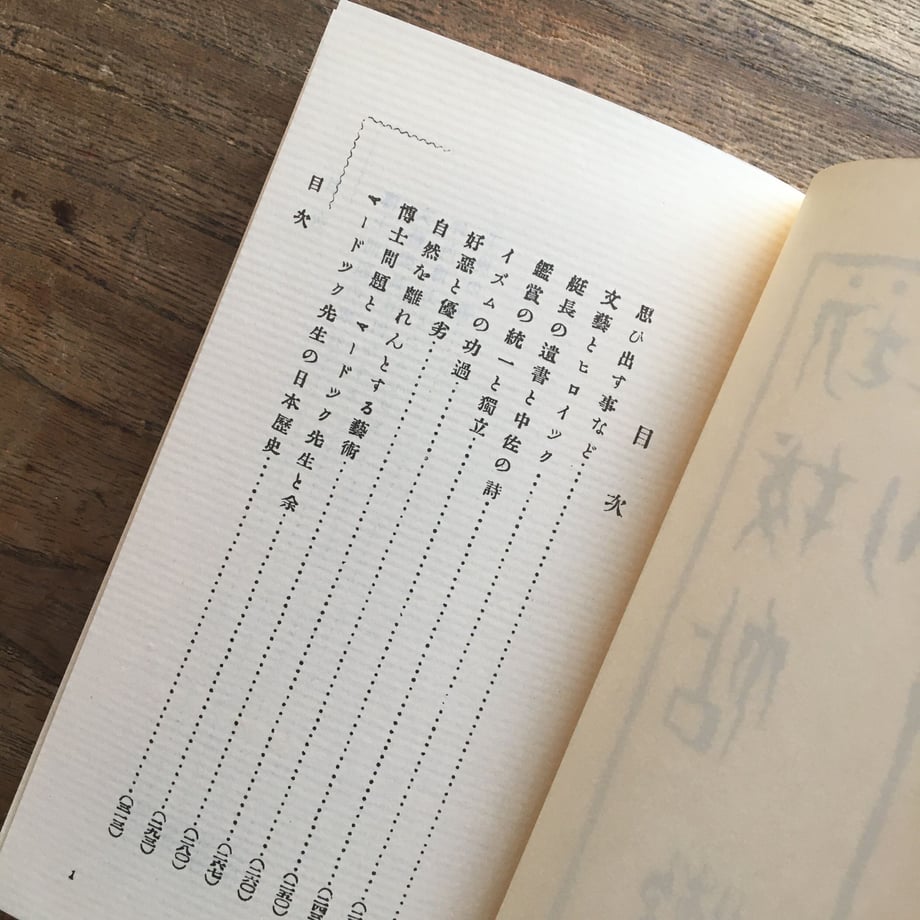 目次
思ひ出す事など
文藝とヒロイツク
艇長の遺書と中佐の詩
鑑賞の統一と獨立
イズムの功過……(二六〇)
好惡と優劣……(二六七)
自然を離れんとする藝術……(二八〇)
博士問題とマードツク先生と余……(二九三)
マードツク先生の日本歷史
目次
1